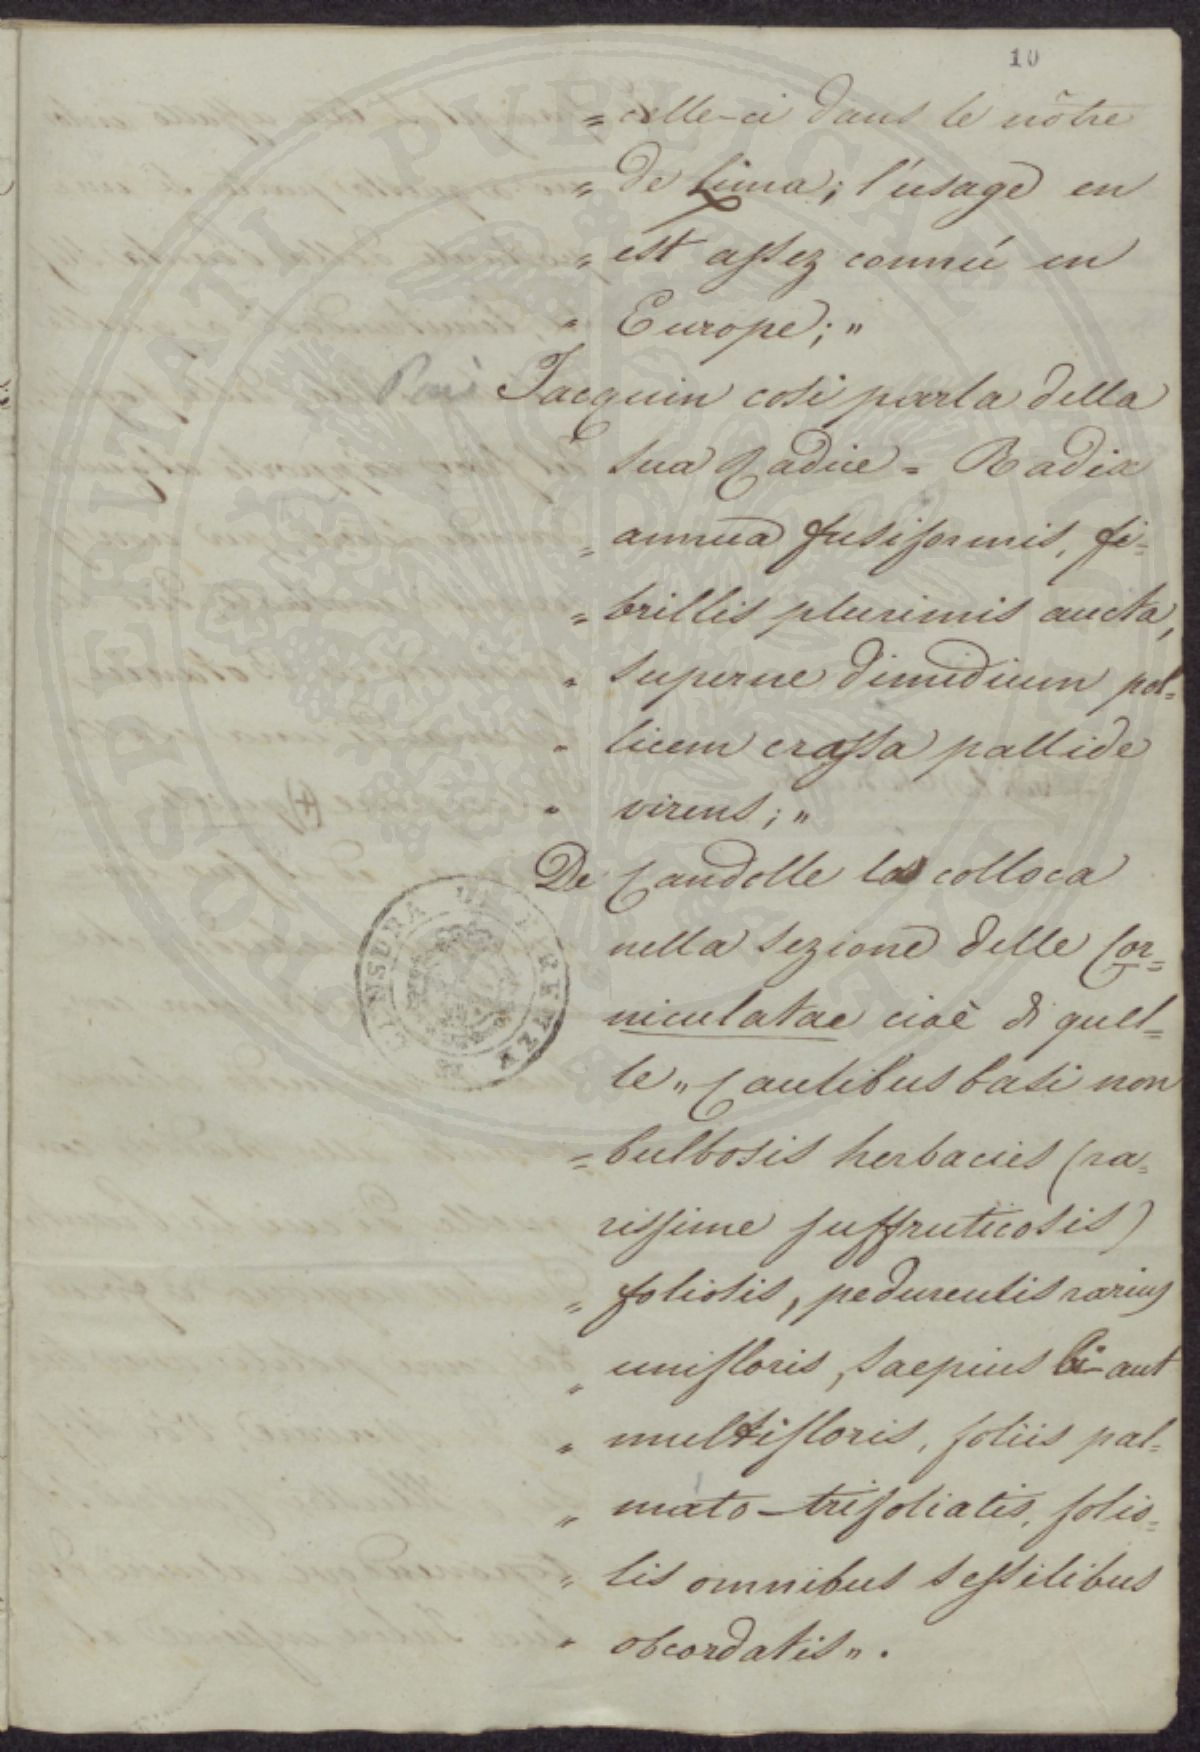 10
= celle-ci dans le nôtre
„ de Lima; l'usage en
„ est assez connú en
„ Europe; „
Jacquin cosi parla della
sua Radice = Radix
= annua fusiformis, fi=
= brillis plurimis aucta,
„ superne dimidium pol=
„ licem crassa pallide
„ virens; „
De Candolle la colloca
nella sezione delle Cor=
niculatae cioè di quel=
le „ Caulibus basi non
= bulbosis herbaceis (ra=
rissime suffruticosis)
„ foliosis, pedunculis rarius
„ unifloris, saepius bi-aut
„ multifloris, foliis pal=
„ mato-trifoliatis, folio=
„ lis omnibus sessilibus
„ obcordatis „.